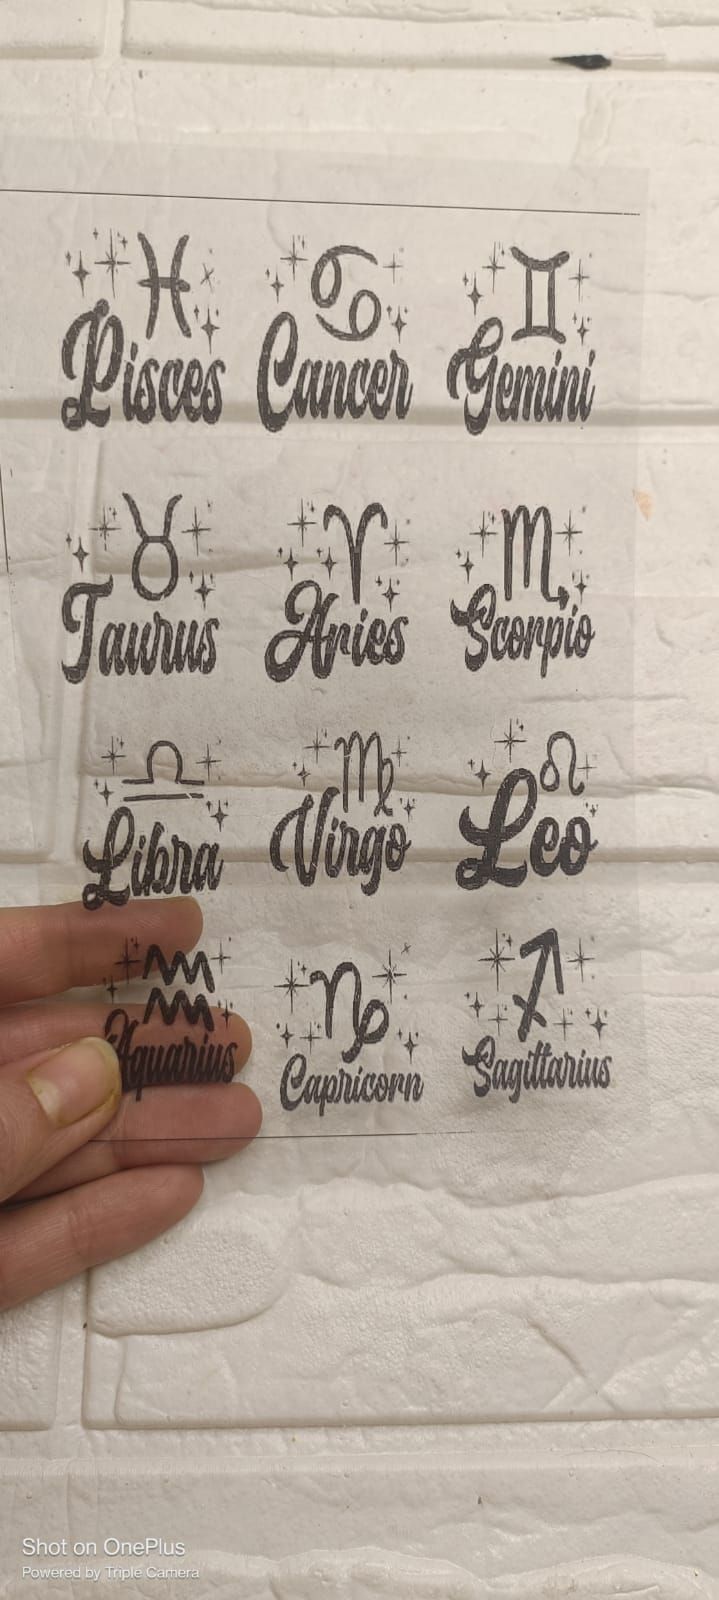 Pisces Cancer Gemini
Taurus Aries Scorpio
Libra Virgo Leo
Aquarius Capricorn Sagittarius
Shot on OnePlus
Powered by Triple Camera